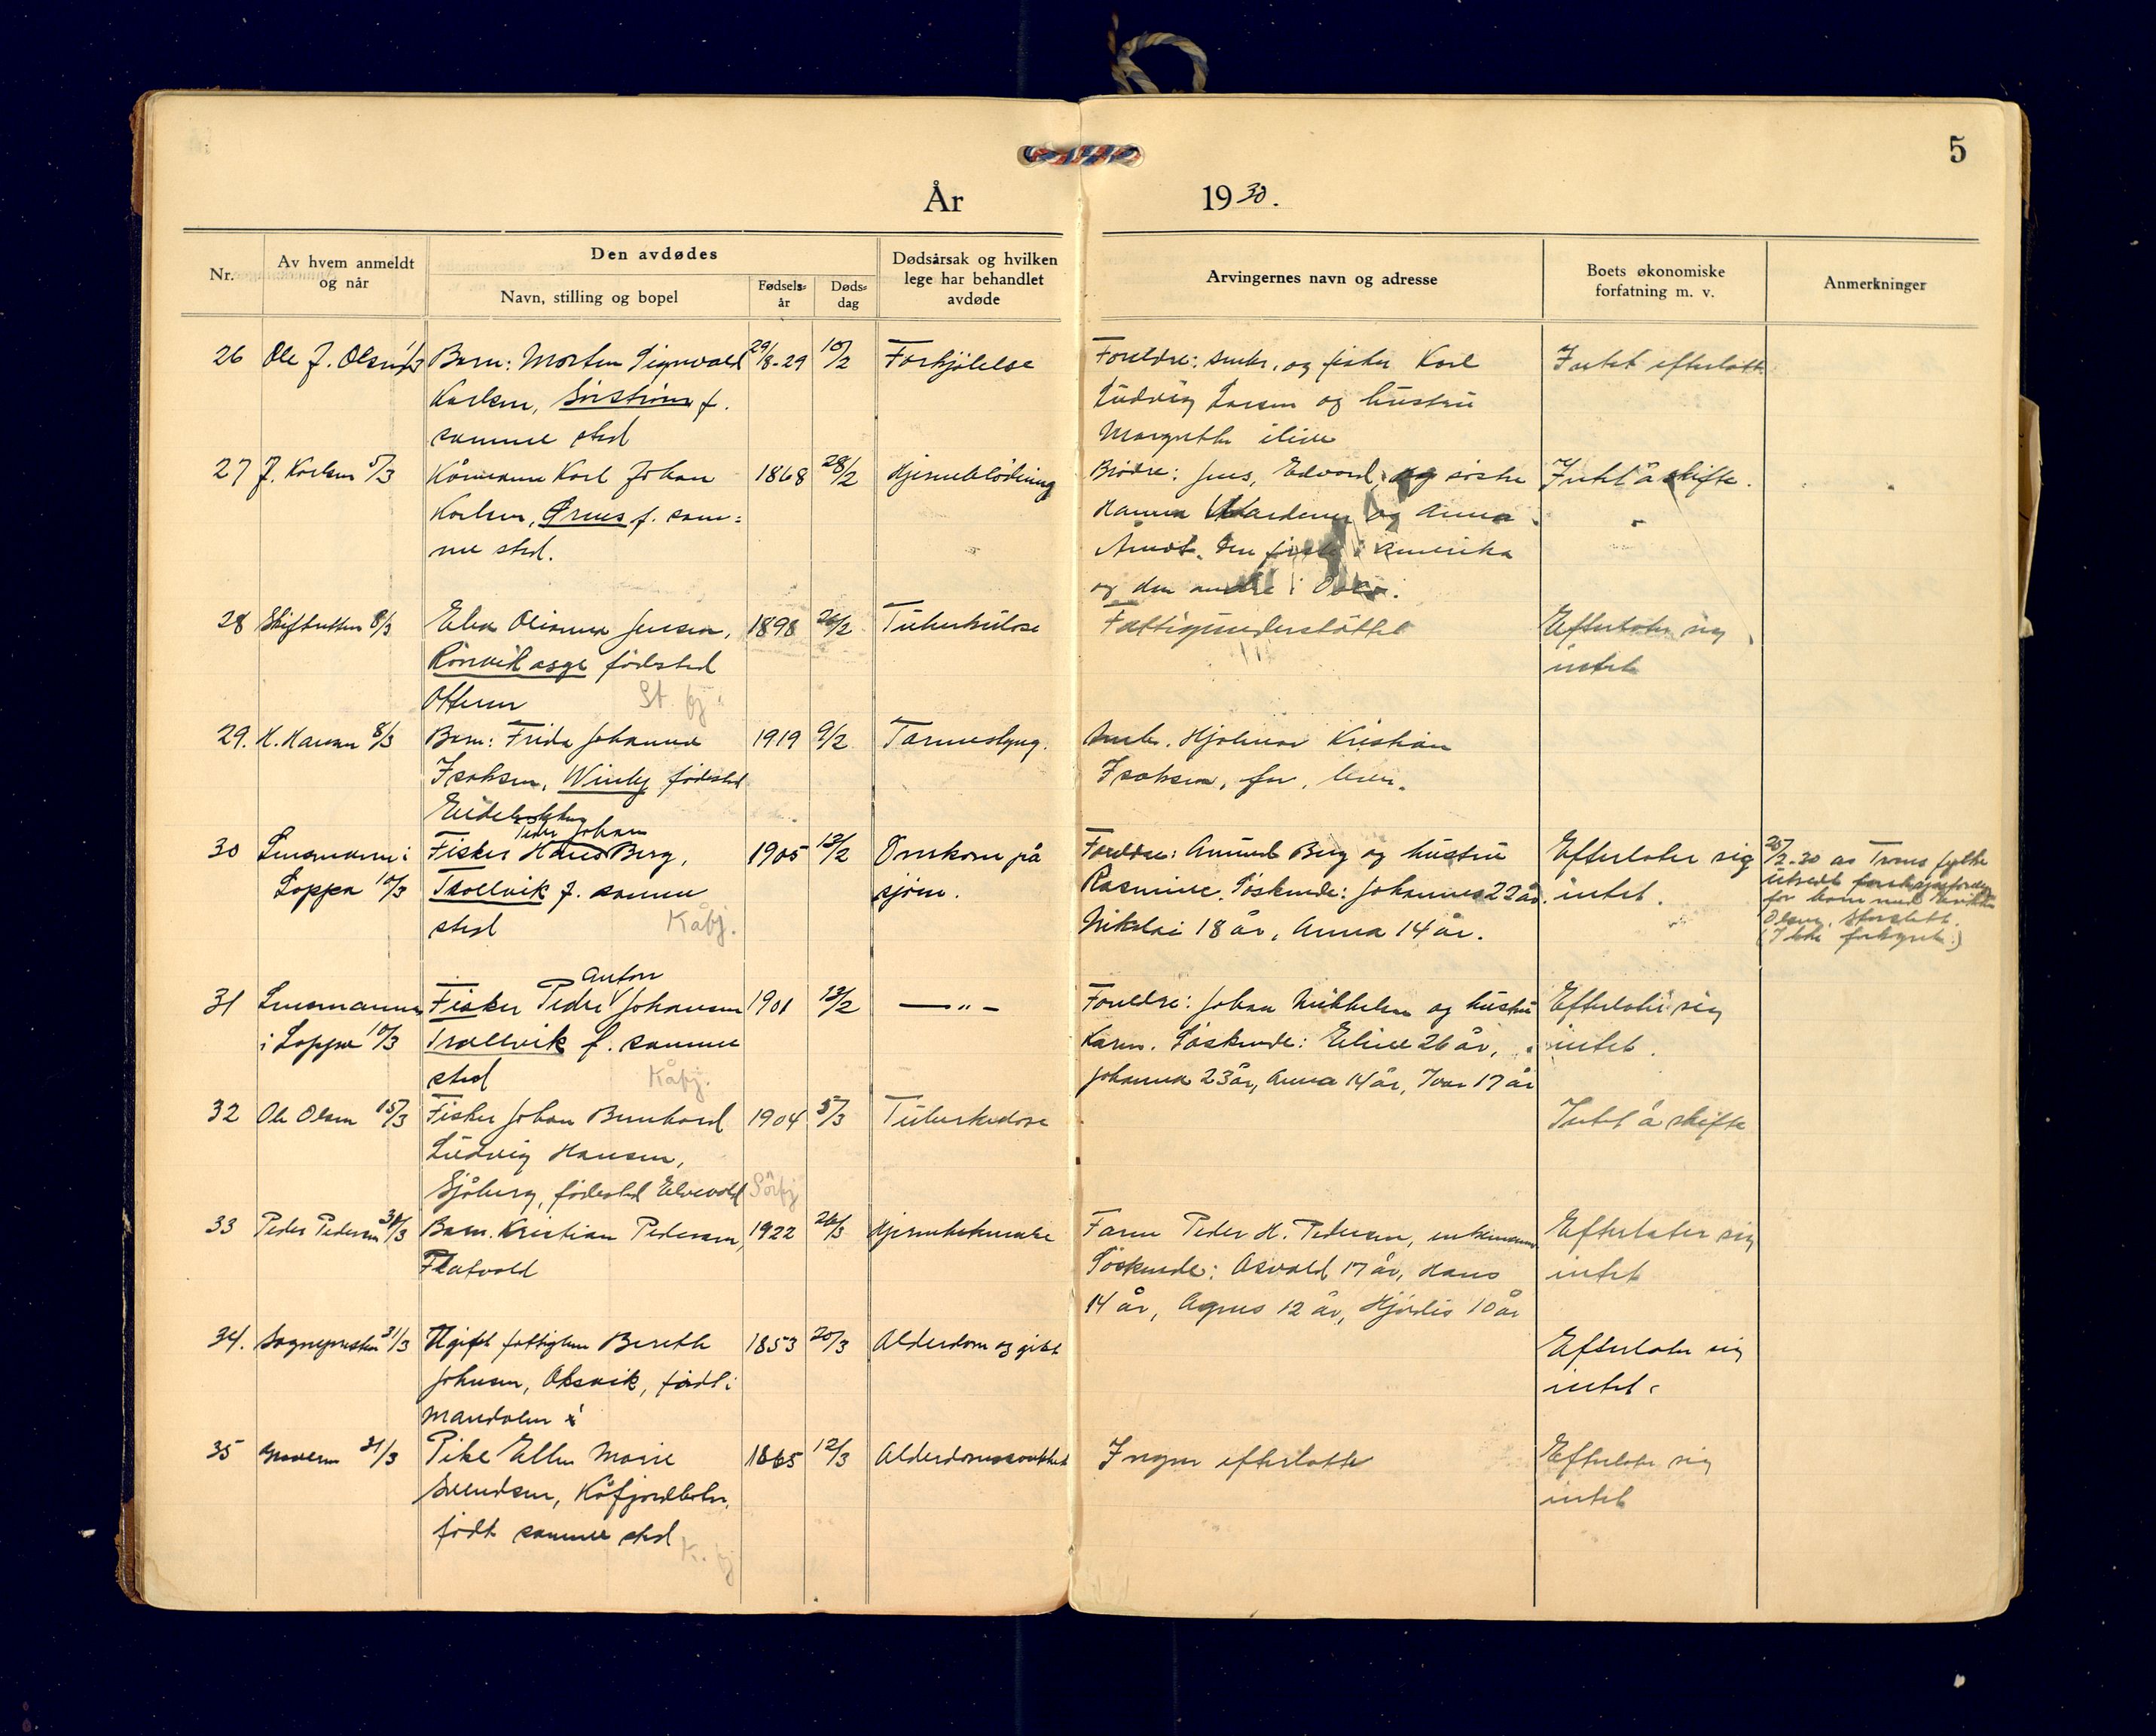 5
År 1930.
Nr.
Av hvem anmeldt og når
Den avdødes
Navn, stilling og bopel
Fødsels-år
Døds-dag
Dødsårsak og hvilken lege har behandlet avdøde
Arvingernes navn og adresse
Boets økonomiske forfatning m. v.
Anmerkninger
26 Ole J. Olsen Barn: Morten Sigvald 29/8-29 10/2 Forkjølelse Foreldre: småbr. og fisker Karl Intet efterlatt
Karlsen, Sörström f. Ludvig Larsen og hustru
samme sted Margrethe ilive
27 J. Karlsen 5/3 Kårmann Karl Johan 1868 28/2 Hjerneblödning Brödre: Jens, Edvard, og söstre Intet å skifte.
Karlsen, Örnes f. sam= Hanna og Anna
me sted. Den første i Amerika
og den andre i Oslo.
28 Skifteretten 8/3 Elen Olianna Jensen, 1898 26/2 Tuberkulose Fattigunderstöttet Efterlater sig
Rönvik asyl födested intet
Otteren St. fj.
29. H. Hansen 8/3 Barn: Frida Johanna 1919 9/2 Tarmeslyng. Småbr. Hjalmar Kristian
Isaksen, födested Isaksen, far, lever.
Peder Johan
30 Lensmannen i Fisker Hans Berg, 1905 13/2 Omkom på Foreldre: Amund Berg og hustru Efterlater sig 25/2-30 av Troms fylke
Loppa 10/3 Trollvik f. samme sjöen. Rasmine. Söskende: Johannes 22 år. intet. utredt
sted Kåfj. Nikolai 18 år, Anna 14 år. for barn med
Olsen, Storslett.
(Ikke)
Anton
31 Lensmannen Fisker Peder Johansen 1901 13/2 — " — Foreldre: Johan Mikkelsen og hustru Efterlater sig
i Loppa 10/3 Trollvik f. samme Karen. Söskende: Eline 26 år, intet.
sted Kåfj. Johanna 23 år, Anna 14 år, Ivar 17 år
32 Ole Olsen 15/3 Fisker Johan Bernhard 1904 5/3 Tuberkulose Intet å skifte
Ludvig Hansen,
Sjåberg, födested Elvevold Sörfj
33 Peder Pedersen 30/3 Barn. Kristian Pedersen, 1922 26/3 Faren Peder H. Pedersen, enkemann Efterlater sig
Flatvold Söskende: Asvald 17 år, Hans intet
14 år, Agnes 12 år, Hjördis 10 år
34. Sognepresten 31/3 Ugift fattiglem Bereth 1853 20/3 Alderdom og gikt Efterlater sig
Johnsen, Oksvik, födt i intet.
Mandalen
35 31/3 Pike Ellen Marie 1865 12/3 Alderdomssvakhet Ingen efterlatte Efterlater sig
Svendsen, Kåfjordbotn, intet
födt samme sted K. fj